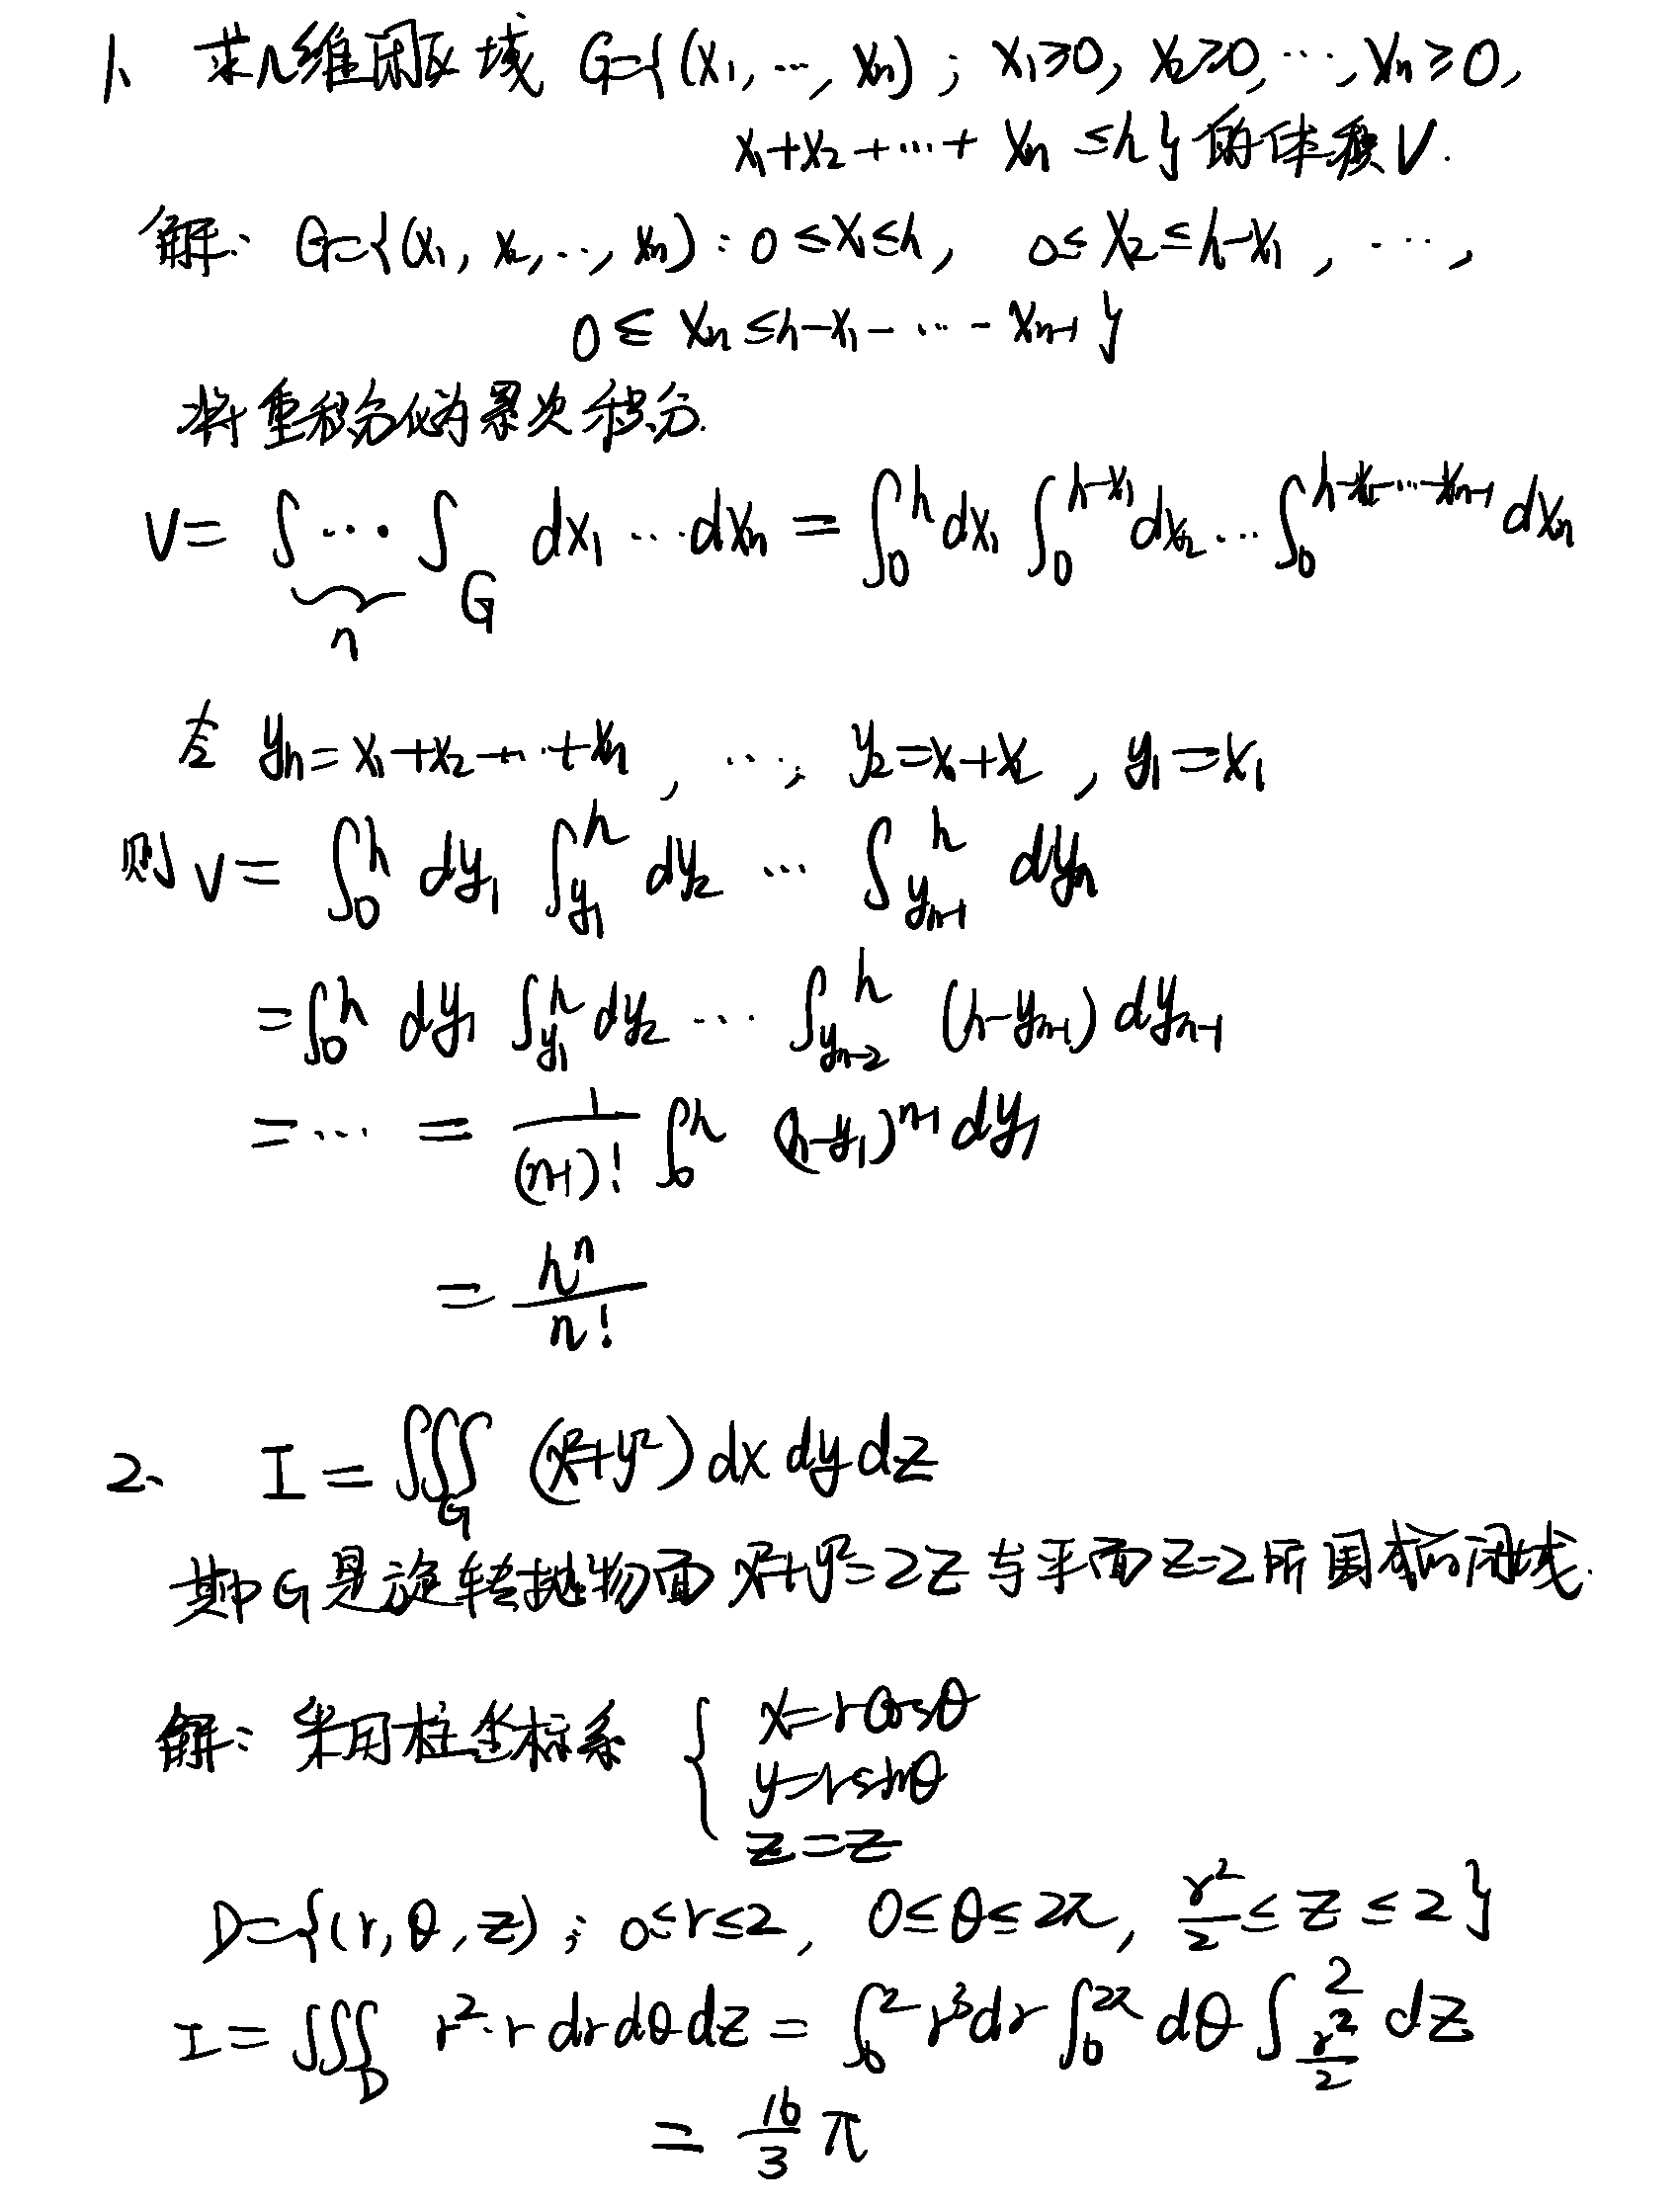 1、求n维闭区域 G={(x₁, …, xₙ) ; x₁≥0, x₂≥0, …, xₙ≥0,
x₁+x₂+…+xₙ ≤h}的体积V.
解: G={(x₁, x₂, …, xₙ) : 0≤x₁≤h, 0≤x₂≤h-x₁, …,
0≤xₙ≤h-x₁-…-xₙ₋₁}
将重积分化为累次积分.
V= ∫…∫_G dx₁…dxₙ = ∫₀^h dx₁ ∫₀^{h-x₁} dx₂ … ∫₀^{h-x₁-…-xₙ₋₁} dxₙ
n
令 yₙ=x₁+x₂+…+xₙ, …, y₂=x₁+x₂, y₁=x₁
则 V= ∫₀^h dy₁ ∫_{y₁}^h dy₂ … ∫_{yₙ₋₁}^h dyₙ
=∫₀^h dy₁ ∫_{y₁}^h dy₂ … ∫_{yₙ₋₂}^h (h-yₙ₋₁) dyₙ₋₁
=… = 1/(n-1)! ∫₀^h (h-y₁)^{n-1} dy₁
= hⁿ/n!
2、 I=∭_G (x²+y²) dx dy dz
其中G是旋转抛物面 x²+y²=2z 与平面z=2所围成的闭域.
解: 采用柱坐标系 { x=rcosθ
y=rsinθ
z=z
D={(r, θ, z) ; 0≤r≤2, 0≤θ≤2π, r²/2≤z≤2}
I=∭_D r²·r dr dθ dz = ∫₀² r³dr ∫₀^{2π} dθ ∫_{r²/2}^2 dz
= 16/3 π